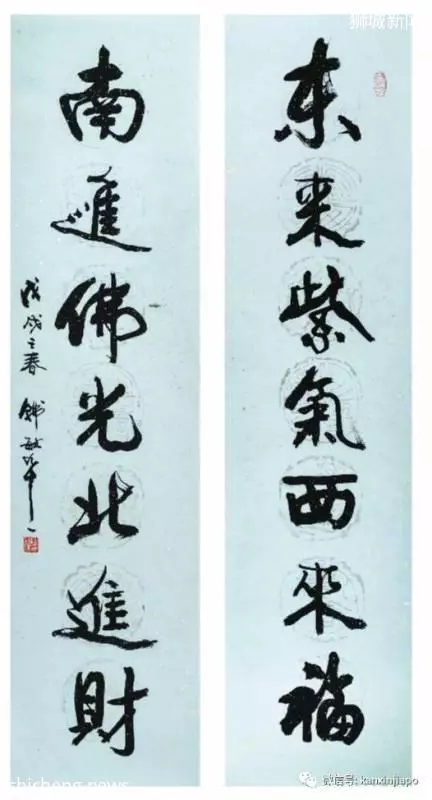 狮城新闻
东来紫氣西來福
南進佛光北進財
戊戌之春
shicheng.news
微信号: kanxinjiapo